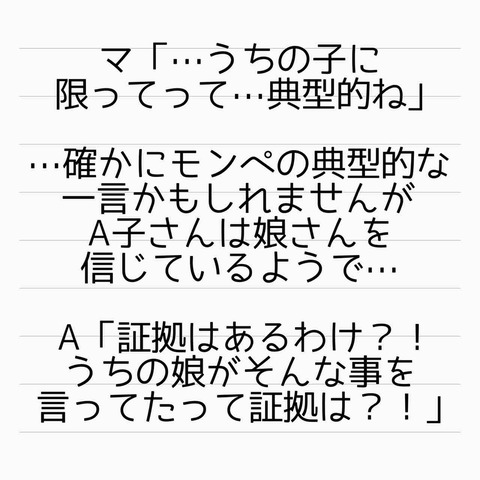 マ「…うちの子に
限ってって…典型的ね」
…確かにモンペの典型的な
一言かもしれませんが
A子さんは娘さんを
信じているようで…
A「証拠はあるわけ？！
うちの娘がそんな事を
言ってたって証拠は？！」